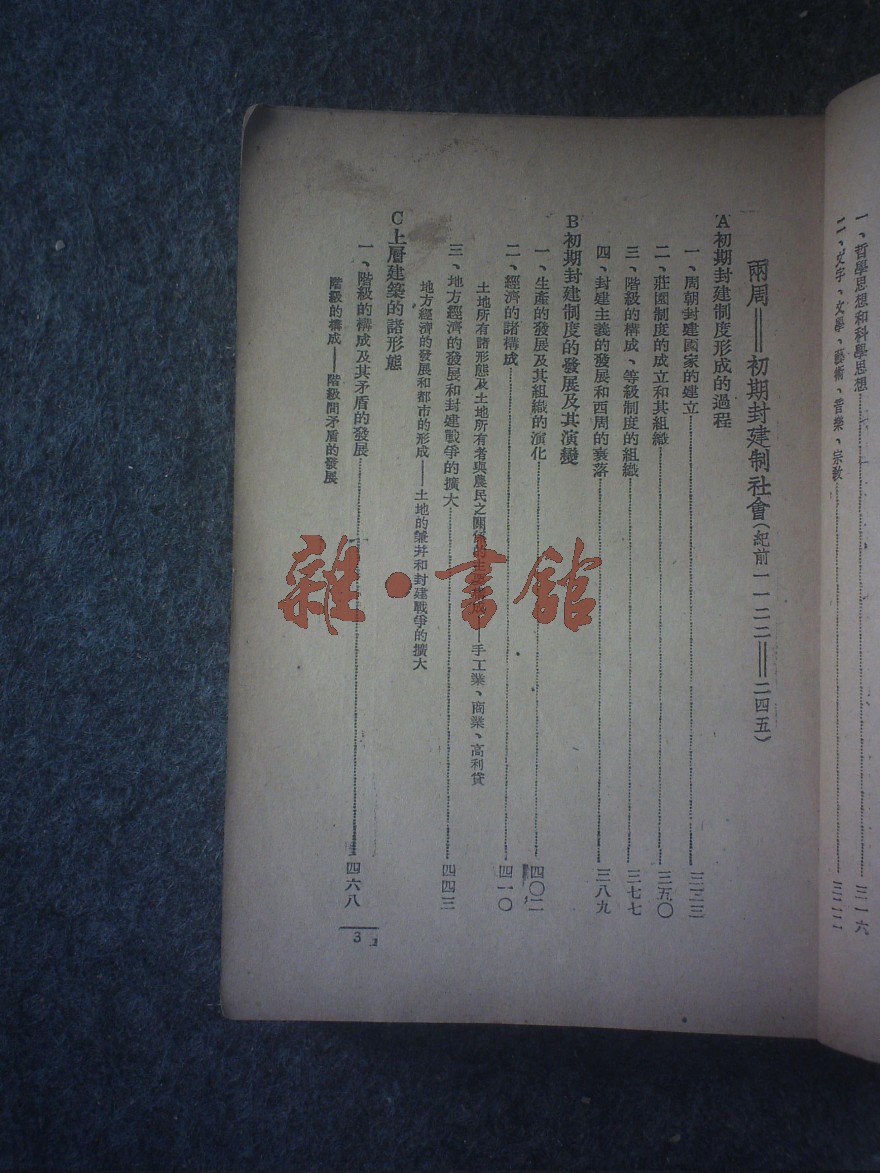 一、哲學思想和科學思想……三一六
二、文字、文學、藝術、音樂、宗教……三二二
兩周——初期封建制社會（紀前一一二二——二四五）
A初期封建制度形成的過程
一、周朝封建國家的建立……三三三
二、莊園制度的成立和其組織……三五〇
三、階級的構成、等級制度的組織……三七七
四、封建主義的發展和西周的衰落……三八九
B初期封建制度的發展及其演變
一、生產的發展及其組織的演化……四〇二
二、經濟的諸構成……四一〇
土地所有諸形態及土地所有者與農民之關係的——手工業、商業、高利貸
三、地方經濟的發展和封建戰爭的擴大……四四三
地方經濟的發展和都市的形成——土地的兼并和封建戰爭的擴大
C上層建築的諸形態
一、階級的構成及其矛盾的發展……四六八
階級的構成——階級間矛盾的發展
3
雜·書館